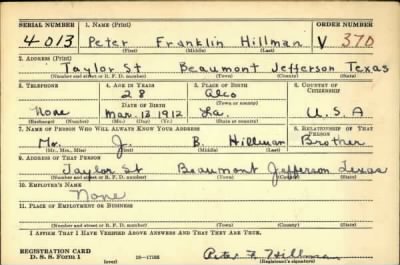 SERIAL NUMBER 1. NAME (Print) ORDER NUMBER
4013 Peter Franklin Hillman V 370
(First) (Middle) (Last)
2. ADDRESS (Print)
Taylor St Beaumont Jefferson Texas
(Number and street or R. F. D. number) (Town) (County) (State)
3. TELEPHONE 4. AGE IN YEARS 5. PLACE OF BIRTH 6. COUNTRY OF CITIZENSHIP
28 Alco
DATE OF BIRTH (Town or county)
None Mar. 13 1912 La. U.S.A
(Exchange) (Number) (Mo.) (Day) (Yr.) (State or country)
7. NAME OF PERSON WHO WILL ALWAYS KNOW YOUR ADDRESS 8. RELATIONSHIP OF THAT PERSON
Mr. J. B. Hillman Brother
(Mr., Mrs., Miss) (First) (Middle) (Last)
9. ADDRESS OF THAT PERSON
Taylor St Beaumont Jefferson Texas
(Number and street or R. F. D. number) (Town) (County) (State)
10. EMPLOYER'S NAME
None
11. PLACE OF EMPLOYMENT OR BUSINESS
(Number and street or R. F. D. number) (Town) (County) (State)
I AFFIRM THAT I HAVE VERIFIED ABOVE ANSWERS AND THAT THEY ARE TRUE.
REGISTRATION CARD
D. S. S. Form 1 (over) 16—17105 Peter F. Hillman
(Registrant's signature)